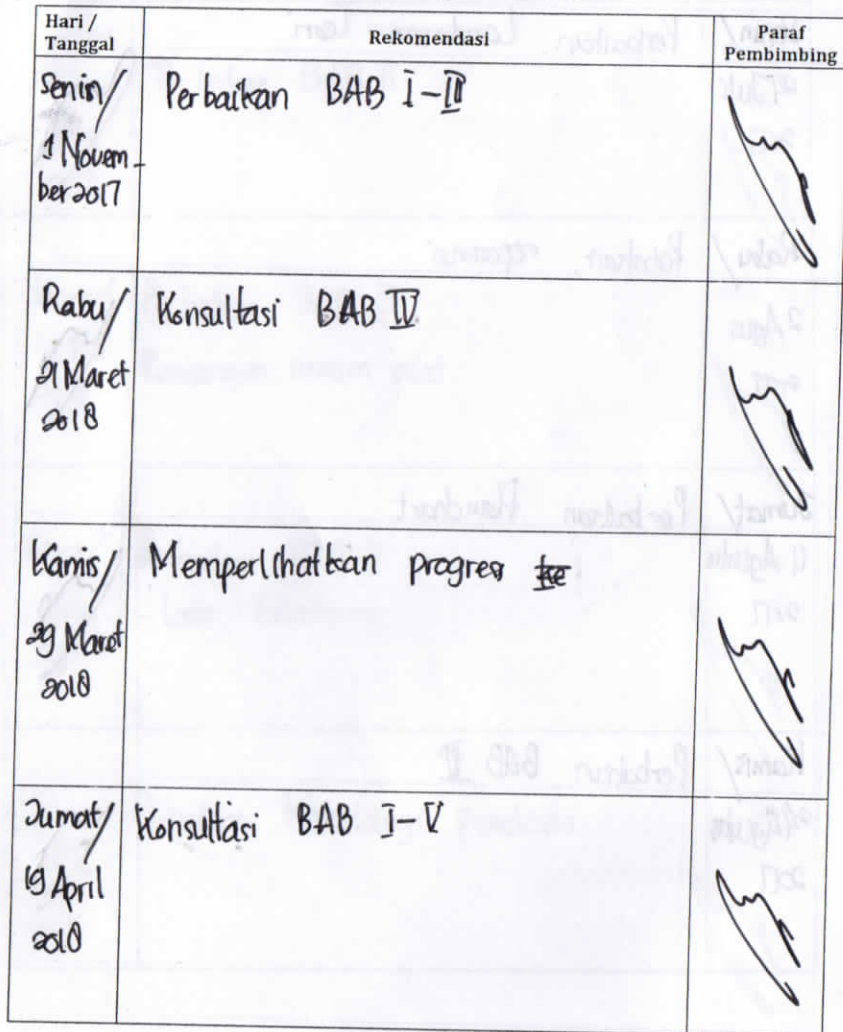 Hari /
Tanggal
Rekomendasi
Paraf
Pembimbing
Senin/
1 Novem-
ber 2017
Perbaikan BAB I-III
Rabu/
21 Maret
2018
Konsultasi BAB IV
Kamis/
29 Maret
2018
Memperlihatkan progres
Jumat/
19 April
2018
Konsultasi BAB I-V